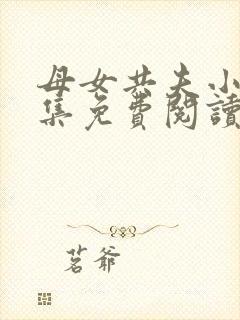 母女共夫小
集免費閱讀
茗爺